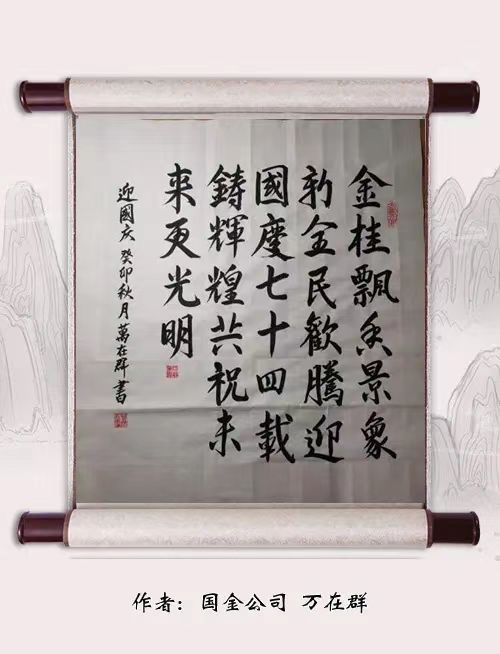 金桂飄香景象
新全民歡騰迎
國慶七十四載
鑄輝煌共祝未
来更光明
迎國庆 癸卯秋月萬在群書
作者：国金公司 万在群